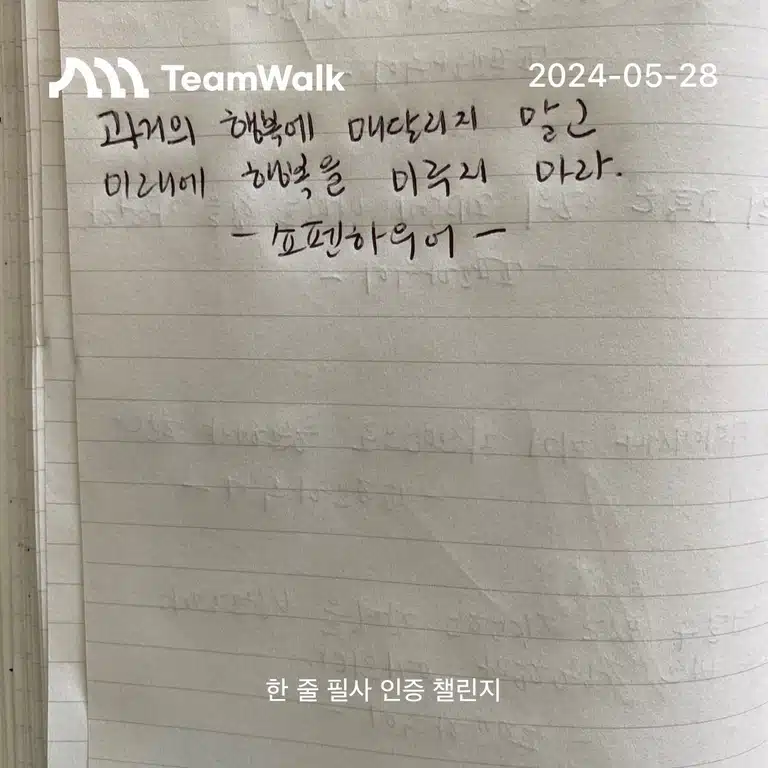 TeamWalk
2024-05-28
과거의 행복에 매달리지 말고
미래에 행복을 미루지 마라.
- 쇼펜하우어 -
한 줄 필사 인증 챌린지